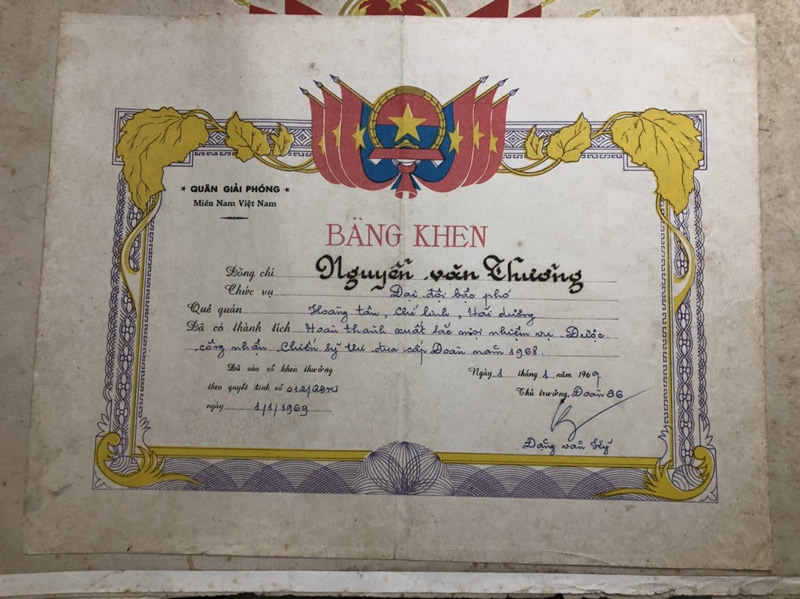 * QUÂN GIẢI PHÓNG *
Miền Nam Việt Nam
BẰNG KHEN
Đồng chí Nguyễn văn Thương
Chức vụ Đại đội bậc phó
Quê quán Hoàng tân, Chí linh, Hải dương
Đã có thành tích Hoàn thành xuất sắc mọi nhiệm vụ Được
công nhận Chiến sỹ thi đua cấp Đoàn năm 1968.
Đã vào sổ khen thưởng
theo quyết định số 012/
ngày 1/1/1969
Ngày 1 tháng 1 năm 1969
Thủ trưởng Đoàn 86
Đặng văn